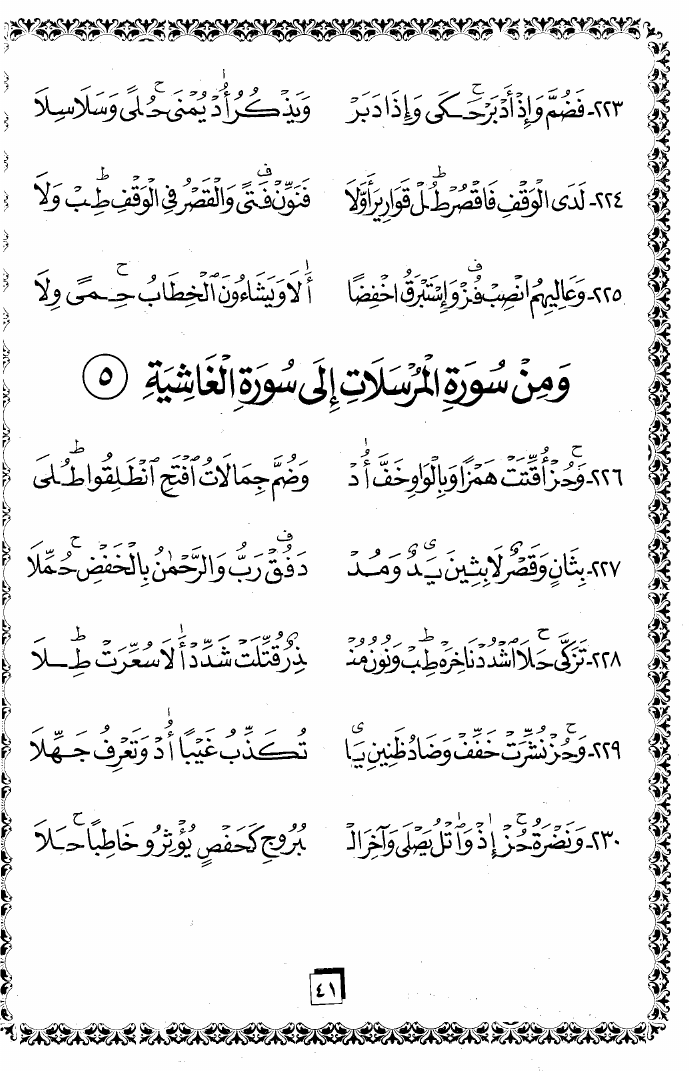 ٢٢٣- فَضُمَّ وَإِذْ أَدْبَرْ حَكَى وَإِذَا دَبَرْ وَيَذْكُرُ أُدْ يُمْنَى حُلًى وَسَلَاسِلَا
٢٢٤- لَدَى الْوَقْفِ فَاقْصُرْ طُلْ قَوَارِيرَ أَوَّلَا فَنَوِّنْ فَتًى وَالْقَصْرُ فِي الْوَقْفِ طِبْ وَلَا
٢٢٥- وَعَالِيهِمُ انْصِبْ فُزْ وَإِسْتَبْرَقُ اخْفِضًا أَلَا وَيَشَاءُونَ الْخِطَابُ حِمًى وِلَا
وَمِنْ سُورَةِ الْمُرْسَلَاتِ إِلَى سُورَةِ الْغَاشِيَةِ (٥)
٢٢٦- وَحُزْ أُقِّتَتْ هَمْزًا وَبِالْوَاوِ خَفَّ أُدْ وَضُمَّ جِمَالَاتُ افْتَحِ انْطَلِقُوا طُلَى
٢٢٧- بِثَانٍ وَقَصْرٌ لَابِثِينَ يَدٌ وَمُدْ دَفُقْ رَبُّ وَالرَّحْمٰنُ بِالْخَفْضِ حُمِّلَا
٢٢٨- تَزَكَّى حَلَا اشْدُدْ نَاخِرَهْ طِبْ وَنُونُ مُنْ ذِرٌ قُتِّلَتْ شَدِّدْ أَلَا سُعِّرَتْ طِلَا
٢٢٩- وَحُزْ نُشِّرَتْ خَفِّفْ وَضَادُ ظَنِينِ يَا تُكَذِّبُ غَيْبًا أُدْ وَتَعْرِفُ جَهِّلَا
٢٣٠- وَنَضْرَةُ حُزْ إِذْ وَاتْلُ يَصْلَى وَآخِرَ الْ بُرُوجِ كَحَفْصٍ يُؤْثِرُو خَاطِبًا حَلَا
٤١